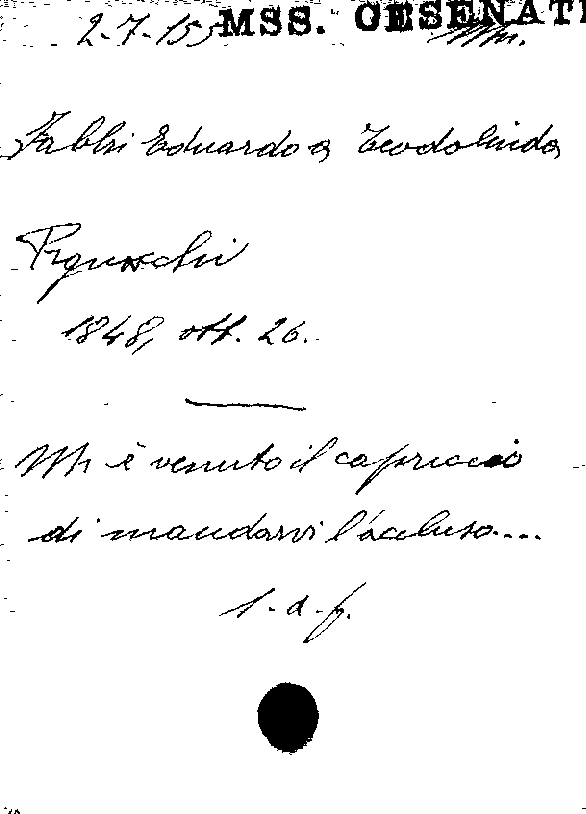 2-7-155 MSS. CESENATI
Mm.
Fabbri Eduardo a Teodolinda
Pignocchi
1848, ott. 26.
Mi è venuto il capriccio
di mandarvi l'accluso....
1. a. f.